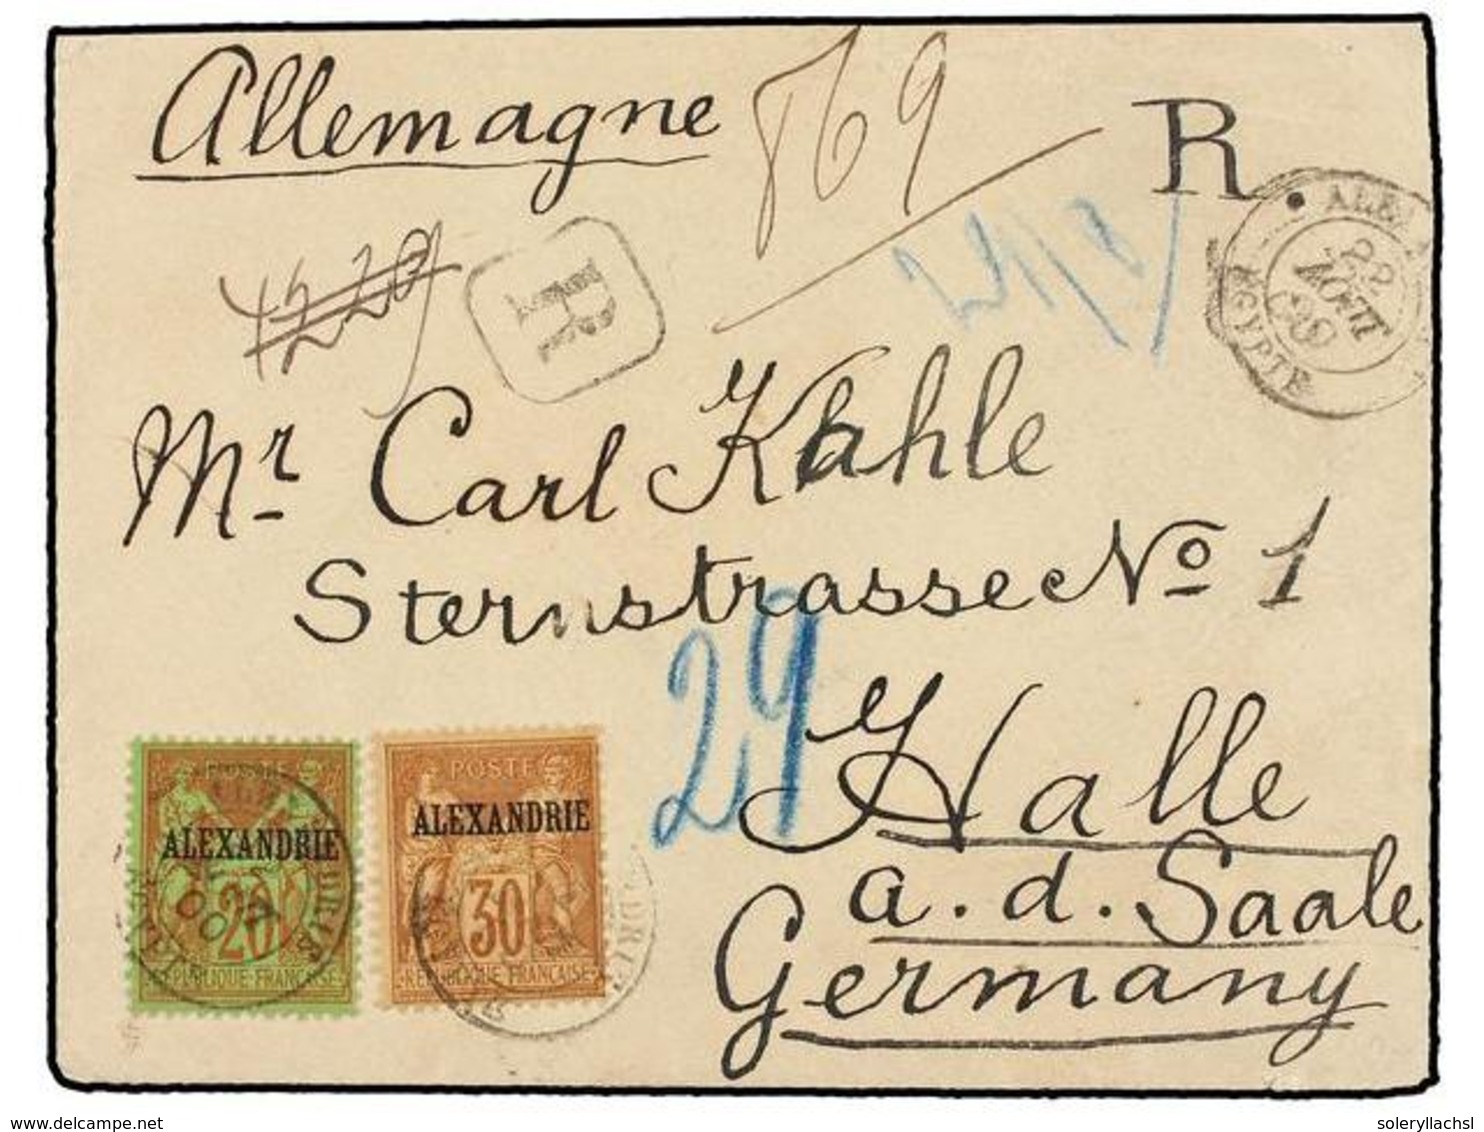 Allemagne
869
R
4229
R
24/8
ALEXA
22
AOUT
00
EGYPTE
Mr Carl Kahle
Sternstrasse No 1
29
Halle
a. d. Saale
Germany
ALEXANDRIE
20
REPUBLIQUE FRANÇAISE
POSTE
ALEXANDRIE
30
REPUBLIQUE FRANÇAISE
soleryllachsl